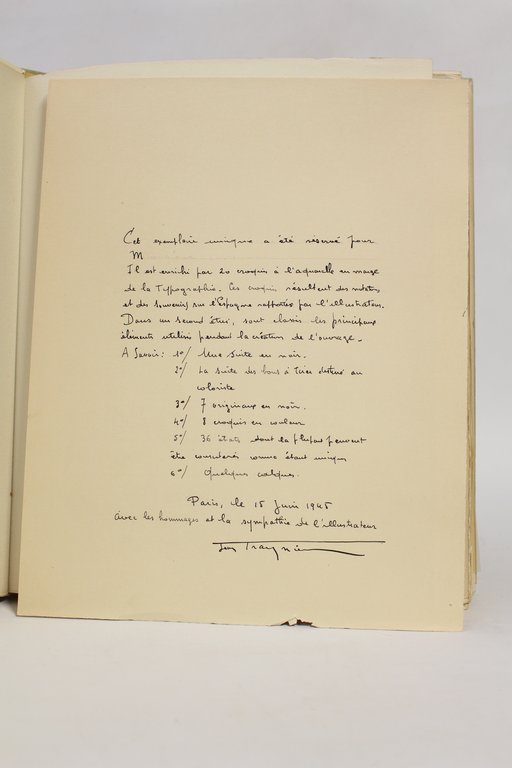 Cet exemplaire unique a été réservé pour
M
Il est enrichi par 20 croquis à l'aquarelle en marge
de la Typographie. Ces croquis résultent des notations
et des souvenirs sur l'Espagne rapportés par l'illustrateur.
Dans un second étui, sont classés les principaux
éléments utilisés pendant la création de l'ouvrage.
A Savoir: 1º/ Une suite en noir.
2º/ La suite des bons à tirer destiné au
coloriste
3º/ 7 originaux en noir.
4º/ 8 croquis en couleur
5º/ 36 états dont la plupart peuvent
être considérés comme étant uniques
6º/ Quelques calques.
Paris, le 15 Juin 1945
avec les hommages et la sympathie de l'illustrateur